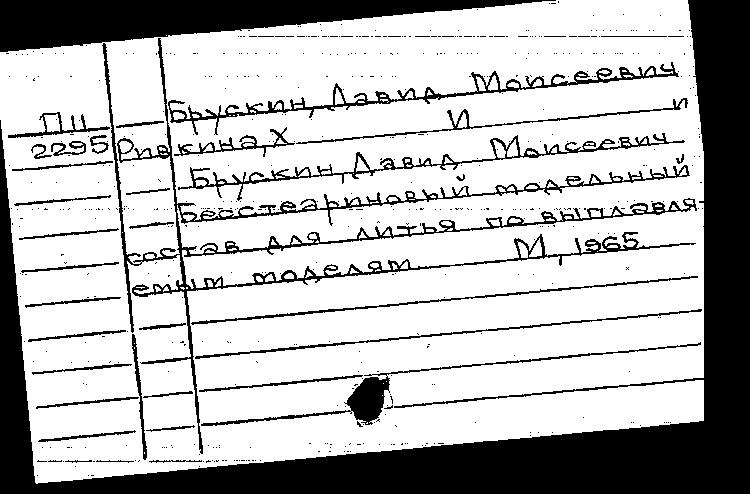 Брускин, Давид Моисеевич
П11
2295 Ривкина, Х И и
Брускин, Давид Моисеевич
Бесстеариновый модельный
состав для литья по выплавля-
емым моделям. М, 1965.